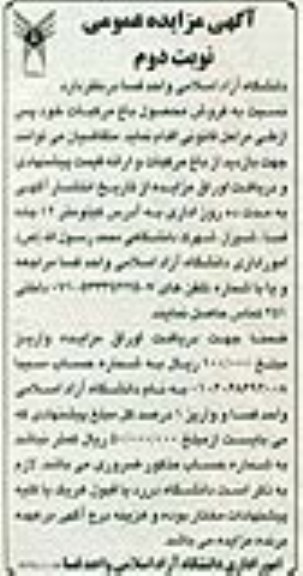 آگهی مزایده عمومی
نوبت دوم
دانشگاه آزاد اسلامی واحد فسا در نظر دارد
نسبت به فروش محصول باغ مرکبات خود پس
از طی مراحل قانونی اقدام نماید. متقاضیان می توانند
جهت بازدید از باغ مرکبات و ارائه قیمت پیشنهادی
و دریافت اوراق مزایده از تاریخ انتشار آگهی
به مدت ده روز اداری به آدرس کیلومتر ۱۲ جاده
فسا - شیراز شهرک دانشگاهی محمد رسول الله (ص)
امور اداری دانشگاه آزاد اسلامی واحد فسا مراجعه
و یا با شماره تلفن های داخلی
۲۵۱ تماس حاصل نمایند.
ضمنا جهت دریافت اوراق مزایده واریز
مبلغ ریال به شماره حساب سیبا
به نام دانشگاه آزاد اسلامی
واحد فسا و واریز درصد کل مبلغ پیشنهادی که
می بایست از مبلغ ریال کمتر نباشد
به شماره حساب مذکور ضروری می باشد. لازم
به ذکر است دانشگاه در رد یا قبول هریک یا کلیه
پیشنهادات مختار بوده و هزینه درج آگهی بر عهده
برنده مزایده می باشد.
امور اداری دانشگاه آزاد اسلامی واحد فسا